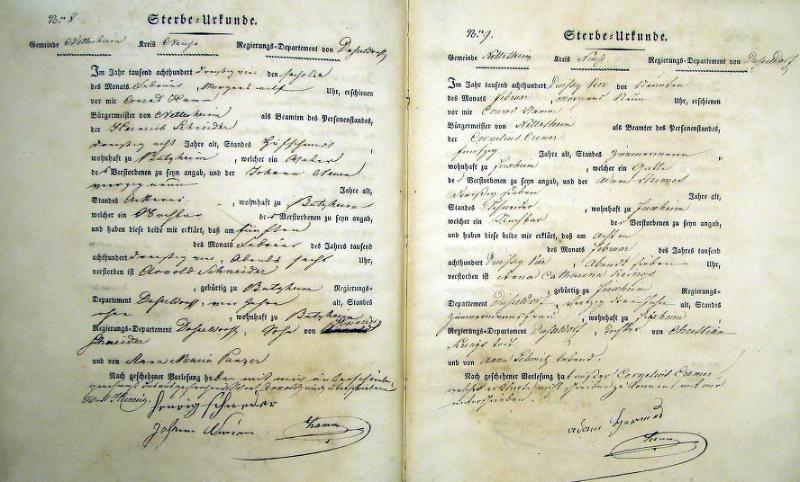 No 8
Sterbe-Urkunde.
Gemeinde Nettesheim Kreis Neuss Regierungs-Departement von Düsseldorf
Im Jahr tausend achthundert dreißig vier den sechsten
des Monats Februar Morgens elf Uhr, erschienen
vor mir Conrad Hamm
Bürgermeister von Nettesheim als Beamten des Personenstandes,
der Heinrich Schneider
dreißig acht Jahre alt, Standes
wohnhaft zu Butzheim, welcher ein Vater
des Verstorbenen zu seyn angab, und der Johann
vierzig neun Jahre alt,
Standes Ackerer, wohnhaft zu Butzheim
welcher ein Nachbar des Verstorbenen zu seyn angab,
und haben diese beide mir erklärt, daß am fünften
des Monats Februar des Jahres tausend
achthundert dreißig vier, Abends sechs Uhr,
verstorben ist Arnold Schneider
, gebürtig zu Butzheim Regierungs-
Departement Düsseldorf, vier Jahre alt, Standes
ohne, wohnhaft zu Butzheim
Regierungs-Departement Düsseldorf, Sohn von Heinrich
Schneider
und von Anna Maria Panzer
Nach geschehener Vorlesung haben mit mir unterschrieben
Henrig Schneder
Johann
Hamm
No 9.
Sterbe-Urkunde.
Gemeinde Nettesheim Kreis Neuß Regierungs-Departement von Düsseldorf
Im Jahr tausend achthundert dreißig vier den Neunten
des Monats Februar Morgens Neun Uhr, erschienen
vor mir Conrad Hamm
Bürgermeister von Nettesheim als Beamten des Personenstandes,
der Cornelius Cremer
fünfzig Jahre alt, Standes Zimmermann
wohnhaft zu Frixheim, welcher ein Gatte
der Verstorbenen zu seyn angab, und der Adam Hermes
dreißig sieben Jahre alt,
Standes Schneider, wohnhaft zu Frixheim
welcher ein Nachbar der Verstorbenen zu seyn angab,
und haben diese beide mir erklärt, daß am achten
des Monats Februar des Jahres tausend
achthundert dreißig vier, Abends sieben Uhr,
verstorben ist Anna Catharina
, gebürtig zu Frixheim Regierungs-
Departement Düsseldorf, vierzig drei Jahre alt, Standes
Zimmermannsfrau, wohnhaft zu Frixheim
Regierungs-Departement Düsseldorf, Tochter von Christian
und von Anna Schmitz lebend.
Nach geschehener Vorlesung hat außer Cornelius Cremer
welcher erklärte nicht schreiben zu können mit mir
unterschrieben.
Adam Hermes
Hamm